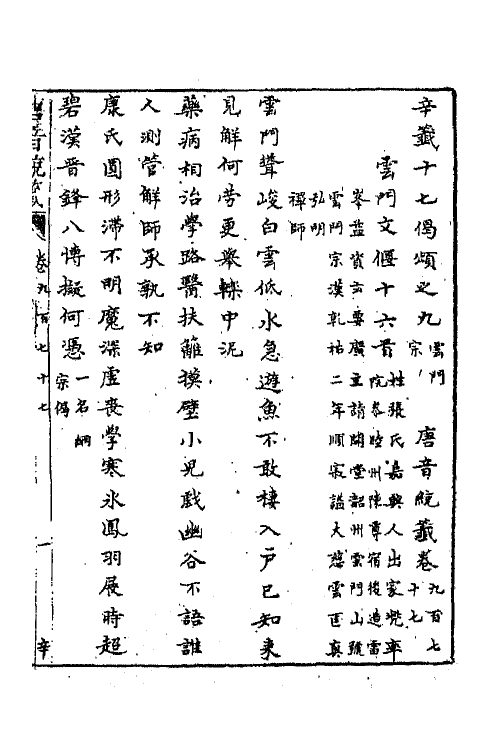 辛籤十七偈頌之九 雲門宗 唐音統籤卷 九百七十七
雲門文偃十六首 姓張氏嘉興人出家兜率院參睦州陳尊宿後造雪
峯益資玄要廣主請開堂韶州雲門山號雲門宗漢乾祐二年順寂諡大慈雲匡真
弘明禪師
雲門聳峻白雲低水急遊魚不敢棲入戶已知來
見解何勞更舉轢中泥
藥病相治學路醫扶籬摸壁小兒戲幽谷不語誰
人測管解師承孰不知
康氏圓形滯不明魔深虛喪學寒冰鳳羽展時超
碧漢晉鋒八博擬何憑 一名綱宗偈
卷九百七十七
一
辛